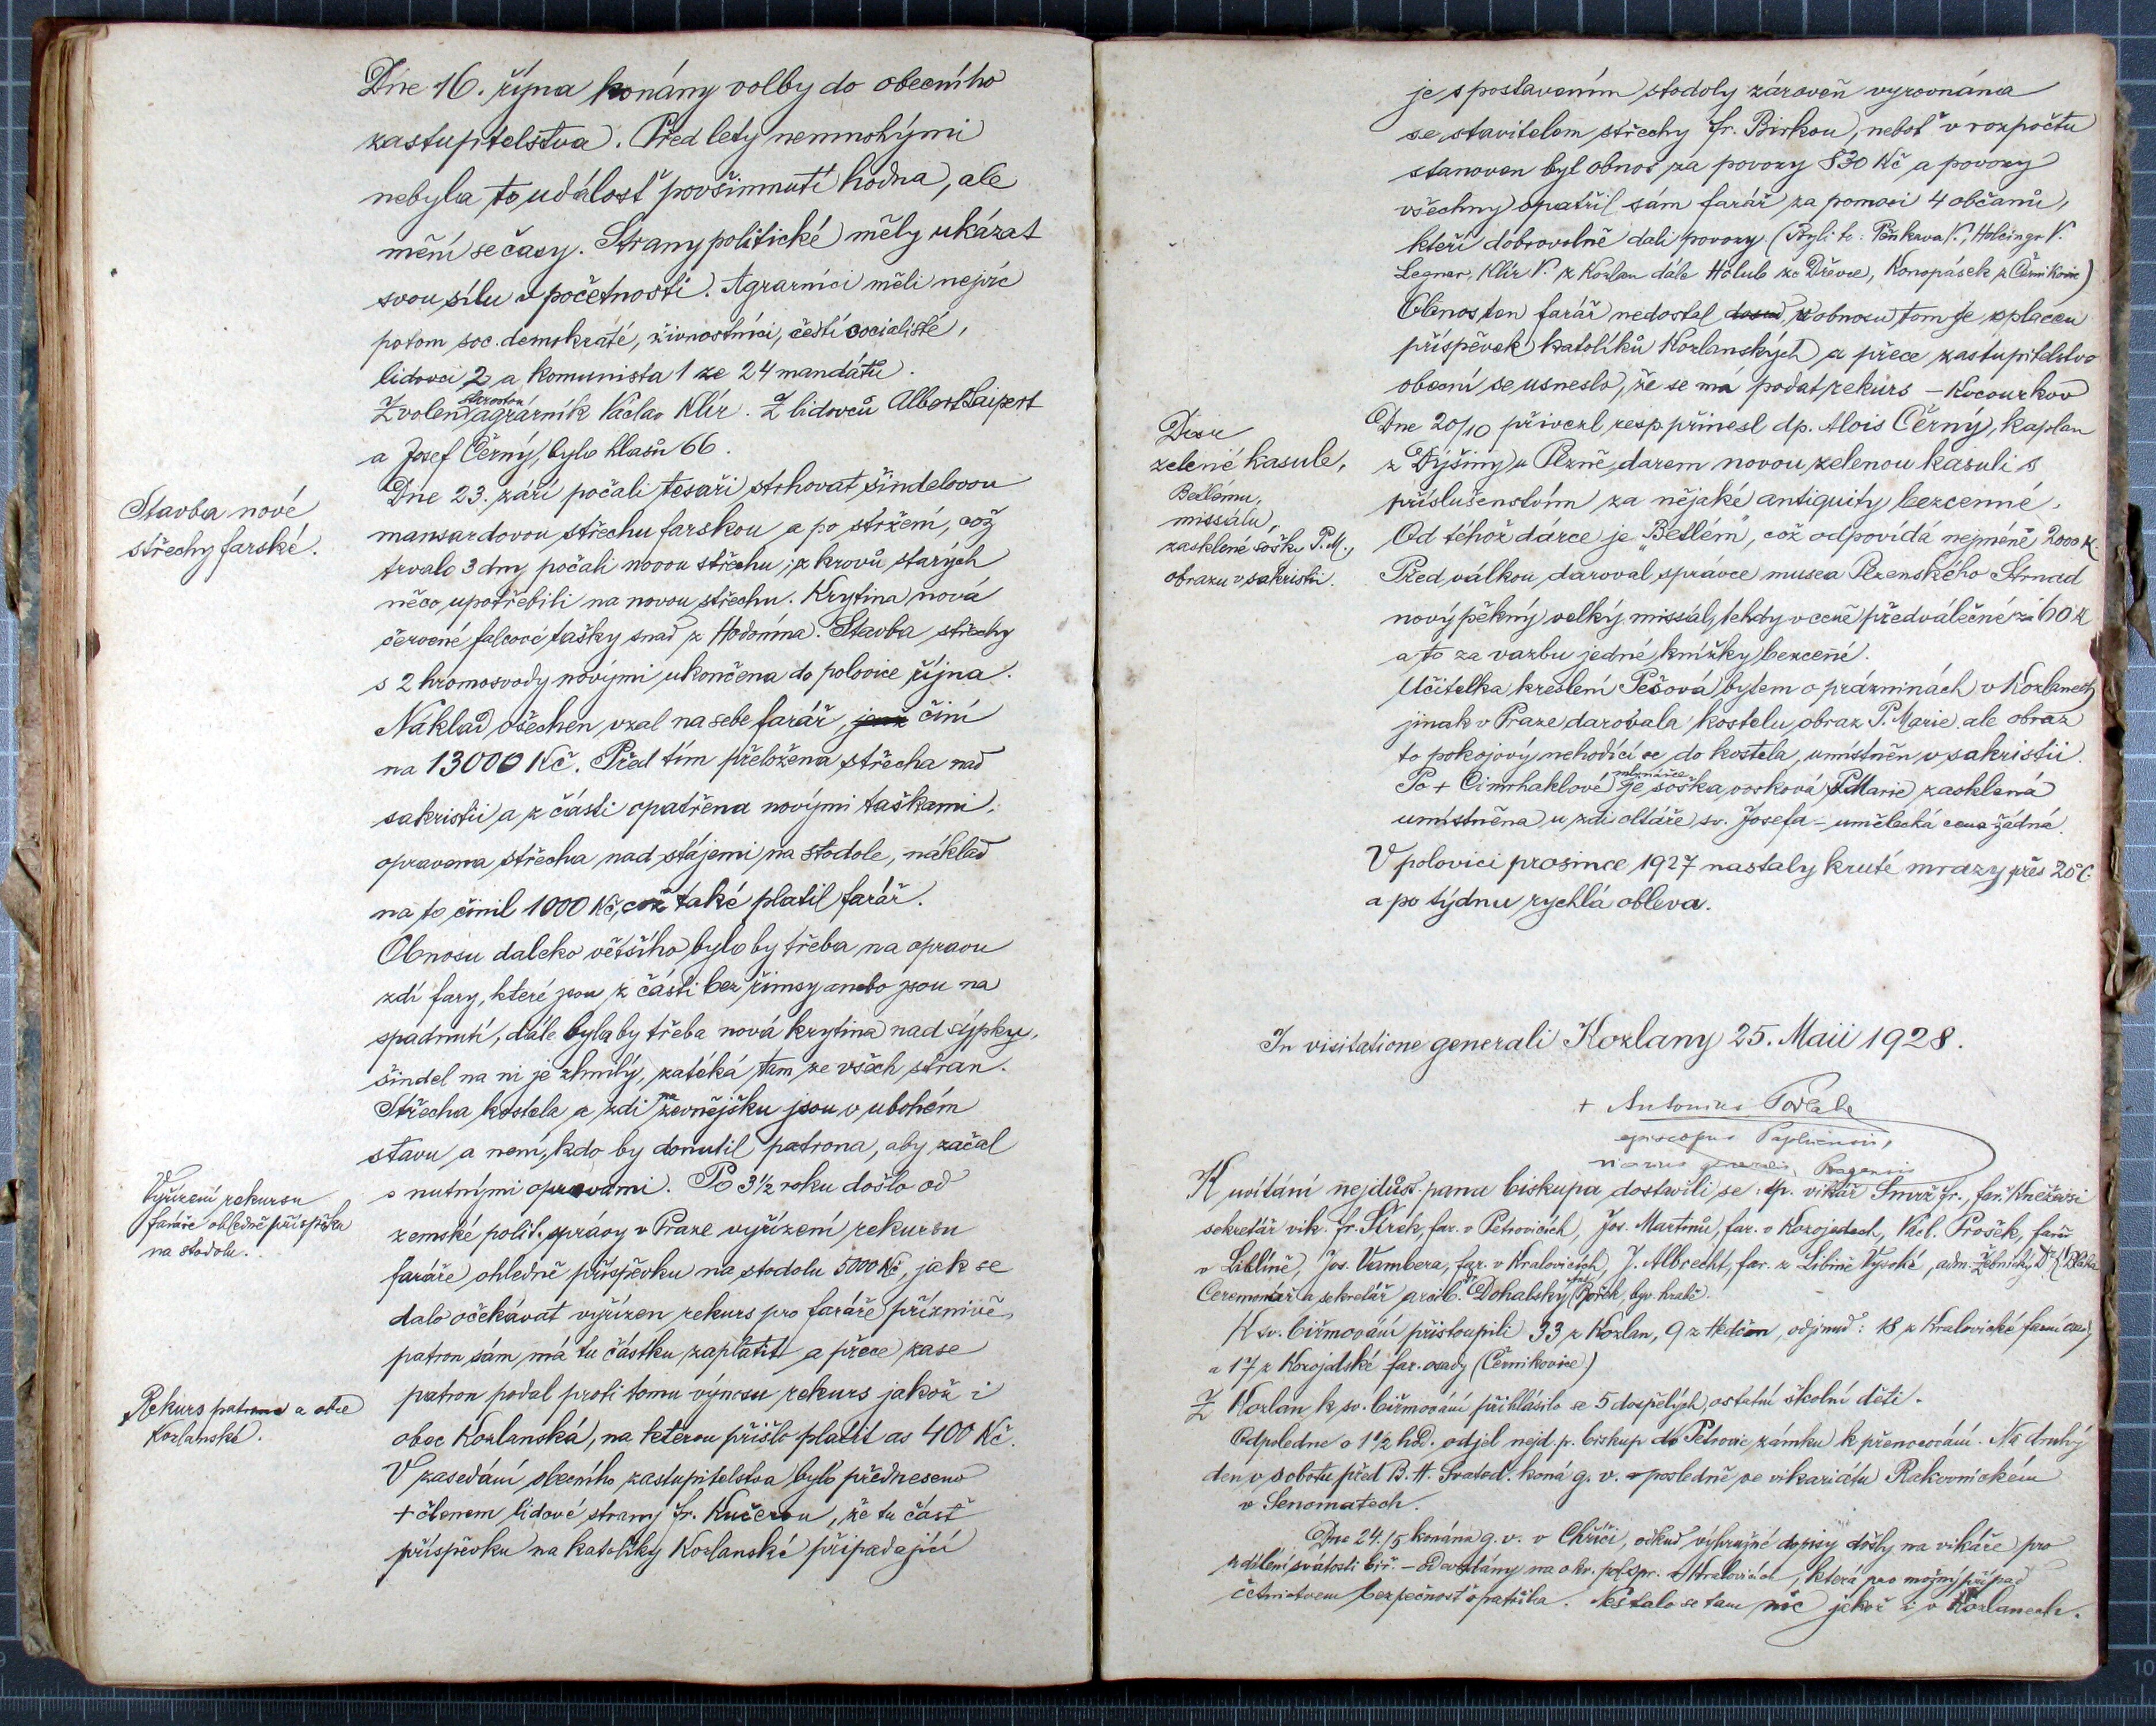 Dne 16. října konány volby do obecního
zastupitelstva. Před lety nemnohými
nebyla to událosť povšimnutí hodna, ale
mění se časy. Strany politické měly ukázat
svou sílu v početnosti. Agrarníci měli nejvíc
potom soc. demokraté, živnostníci, čeští socialisté,
lidovci 2 a komunista 1 ze 24 mandátu.
Zvolen starostou agrárník Václav Klír. Z lidovců Albert Saipert
a Josef Černý, bylo hlasů 66.
Stavba nové
střechy farské.
Dne 23. září počali tesaři strhovat šindelovou
mansardovou střechu farskou a po stržení, což
trvalo 3 dny počali novou střechu; z krovů starých
něco upotřebili na novou střechu. Krytina nová
červené falcové tašky snad z Hodonína. Stavba střechy
s 2 hromosvody novými ukončena do polovice října.
Náklad všechen vzal na sebe farář, jenž činí
na 13000 Kč. Před tím přeložena střecha nad
sakristií a z části opatřena novými taškami,
opravena střecha nad stájemi, na stodole, náklad
na to činil 1000 Kč, což také platil farář.
Obnosu daleko většího bylo by třeba na opravu
zdí fary, které jsou z části bez římsy anebo jsou na
spadnutí, dále byla by třeba nová krytina nad sýpky,
šindel na ni je zhnilý, zatéká tam ze všech stran.
Střecha kostela a zdi na zevnějšku jsou v ubohém
stavu a není, kdo by donutil patrona, aby začal
s nutnými opravami. Po 3½ roku došlo od
Vyřízení rekursu
faráře ohledně příspěvku
na stodolu.
zemské polit. správy v Praze vyřízení rekursu
faráře ohledně příspěvku na stodolu 5000 Kč, jak se
dalo očekávat vyřízen rekurs pro faráře příznivě,
patron sám má tu částku zaplatit a přece zase
Rekurs patrona a obce
Kozlanské.
patron podal proti tomu výnosu rekurs jakož i
obec Kozlanská, na kterou přišlo platit as 400 Kč.
V zasedání obecního zastupitelstva bylo předneseno
+ členem lidové strany Fr. Kučerou, že tu část
příspěvku na katolíky Kozlanské připadající
je s postavením stodoly zároveň vyrovnána
se stavitelem střechy Fr. Birkou, neboť v rozpočtu
stanoven byl obnos za povozy 830 Kč a povozy
všechny opatřil sám farář za pomoci 4 občanů,
kteří dobrovolně dali povozy. (Byli to: Pěnkava V., Holeinge V.
Legner, Klír V. z Kozlan dále Holub ze Dřevce, Konopásek z Černikovic)
Obnos ten farář nedostal dosud, z obnosu tom je splacen
příspěvek katolíků Kozlanských a přece zastupitelstvo
obecní se usneslo, že se má podat rekurs – Kocourkov
Dary
zelené kasule,
Betlému,
missálu,
zasklené sošky P. M.,
obrazu v sakristii.
Dne 20/10 přivezl resp přinesl dp. Alois Černý, kaplan
z Dýšiny u Plzně, darem novou zelenou kasuli s
příslušenstvím za nějaké antiquity bezcenné.
Od téhož dárce je "Betlém", což odpovídá nejméně 2000 K.
Před válkou daroval správce musea Plzenského Strnad
nový pěkný velký missál, tehdy v ceně předválečné za 60 K
a to za vazbu jedné knížky bezcené.
Učitelka kreslení Pešová bytem o prázninách v Kozlanech
jinak v Praze darovala kostelu obraz P. Marie ale obraz
to pokojový nehodící se do kostela, umístněn v sakristii.
Po + Cimrhaklové mlynářce je soška vosková P. Marie zasklená
umístněna u zdi oltáře sv. Josefa – umělecká cena žádná.
V polovici prosince 1927 nastaly kruté mrazy přes 20°C
a po týdnu rychlá obleva.
In visitatione generali Kozlany 25. Maii 1928.
+ Antonius Podlaha
episcopus Paphiensis,
vicarius generalis Pragensis
K uvítání nejdůst. pana biskupa dostavili se: dp. vikář Smrž Fr., far. Kněževsi
sekretář vik. Fr. Sirek, far. v Petrovicích, Jos. Martinů, far. v Kozojedech, Václ. Prošek, farář
v Liblíně, Jos. Vambera, far. v Kralovicích, J. Albrecht, far. z Libině Vysoké, adm. Žebnický Dr. K. Blaha
Ceremonář a sekretář arcib. Dr. Dohalský Bořek, býv. hrabě.
K sv. biřmování přistoupili 33 z Kozlan, 9 z Hedčan, odjinud: 18 z Kralovické farní osady
a 17 z Kozojedské far. osady (Černikovice)
Z Kozlan k sv. biřmování přihlásilo se 5 dospělých, ostatní školní děti.
Odpoledne o 1½ hod. odjel nejd. p. biskup do Petrovic zámku k přenocování. Na druhý
den v sobotu před B. H. Svatod. koná g. v. posledně ve vikariátu Rakovnickém
v Senomatech.
Dne 24./5 konána g. v. v Chříči, odkud výhružné dopisy došly na vikáře pro
udílení svátosti biř. – Odevzdány na okr. pol. spr. v Kralovicích, která pro možný případ
četnictvem bezpečnost opatřila. Nestalo se tam nic jakož i v Kozlanech.